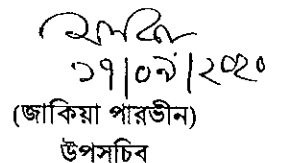 ১৭|০৯|২০২০
(জাকিয়া পারভীন)
উপসচিব